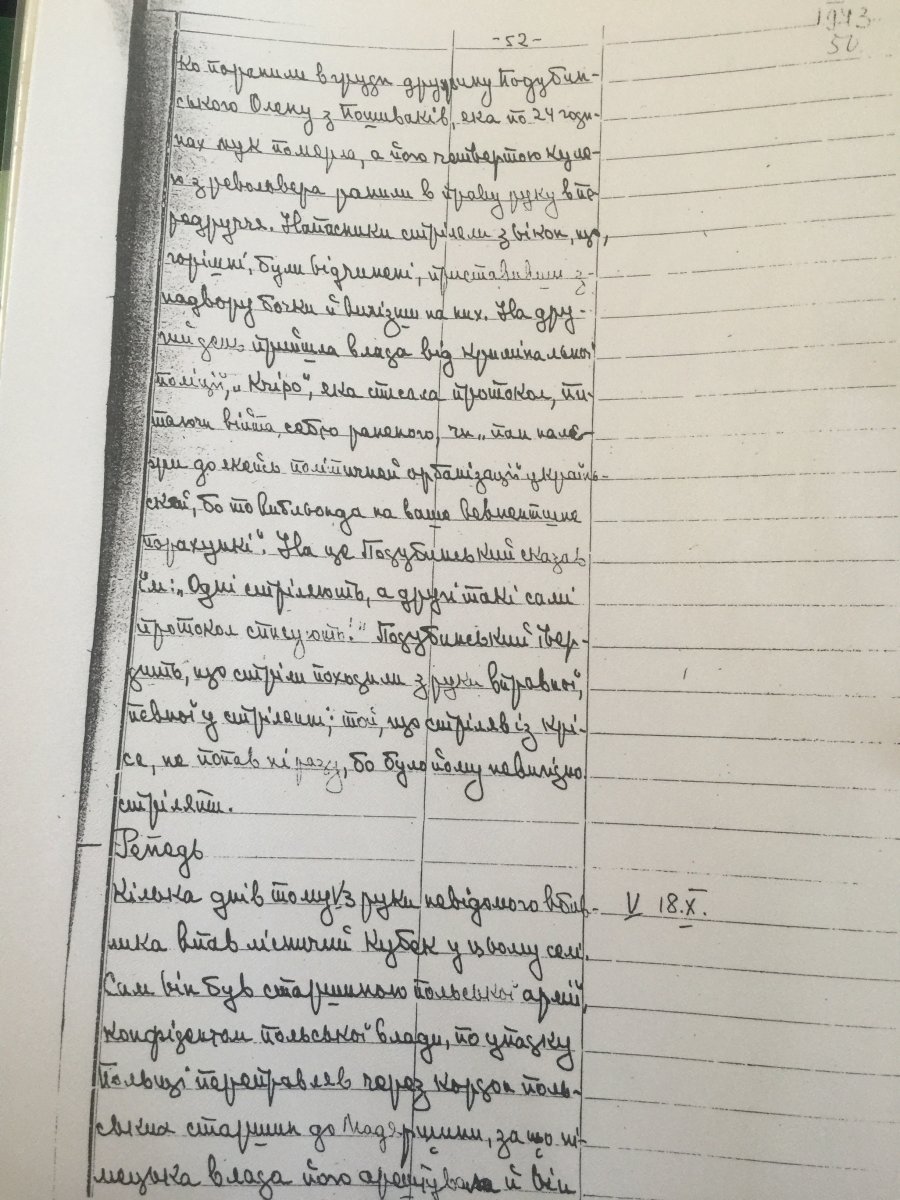 -52-
1943
50
ко поранили в груди дружину Подубин-
ського Олену з Пошиваків, яка по 24 годи-
нах мук померла, а його четвертою куле-
ю з револьвера ранили в праву руку в пе-
редруччя. Напасники стріляли з вікон, що,
горішні, були відчинені, приставивши з-
надвору бочки й вилізши на них. На дру-
гий день прийшла влада від кримінальної
поліції, „Кріпо", яка списала протокол, пи-
таючи війта, себто раненого, чи „пан нале-
жи до якейсь політичней організації україн-
скей, бо то виґльонда на ваше вевнентшне
порахункі". На це Подубинський сказав
їм: „Одні стріляють, а другі такі самі
протокол списують!" Подубинський твер-
дить, що стріли походили з руки вправної,
певної у стрілянні; той, що стріляв із крі-
са, не попав ні разу, бо було йому невигідно
стріляти.
Репедь
Кілька днів тому з руки невідомого вбив-
V 18.X.
ника впав лісничий Кубек у цьому селі.
Сам він був старшиною польської армії,
конфідентом польської влади, по упадку
Польщі переправляв через кордон поль-
ських старшин до Мадярщини, за що ні-
мецька влада його арештувала й він